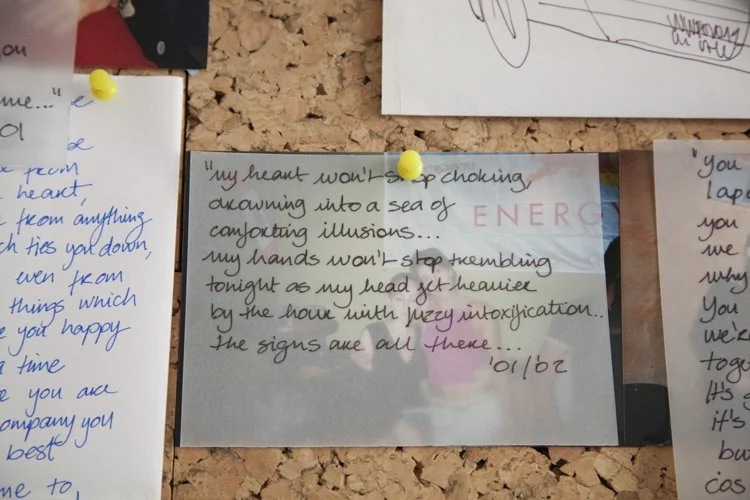 you
me..."
01
e
e
from
heart,
from anything
ch ties you down,
even from
things which
e you happy
a time
e you are
company you
best
me to,
"my heart won't stop choking,
drowning into a sea of
comforting illusions...
my hands won't stop trembling
tonight as my head get heavier
by the hour with fuzzy intoxification..
the signs are all there...
'01/'02
ENERGY
"you
you
we
why
You
we're
toge
It's
it's
bu
cos